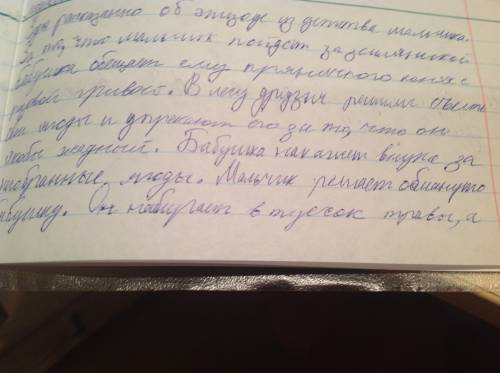 рассказанно об эпизоде из детства мальчика.
За то, что мальчик пойдёт за земляникой
бабушка обещает ему пряничного коня с
розовой гривой. В лесу друзья решили съесть
ягоды и упрекают его за то что он
якобы жадный. Бабушка накажет внука за
ягоды. Мальчик решает обмануть
бабушку. Он набирает в туесок травы, а